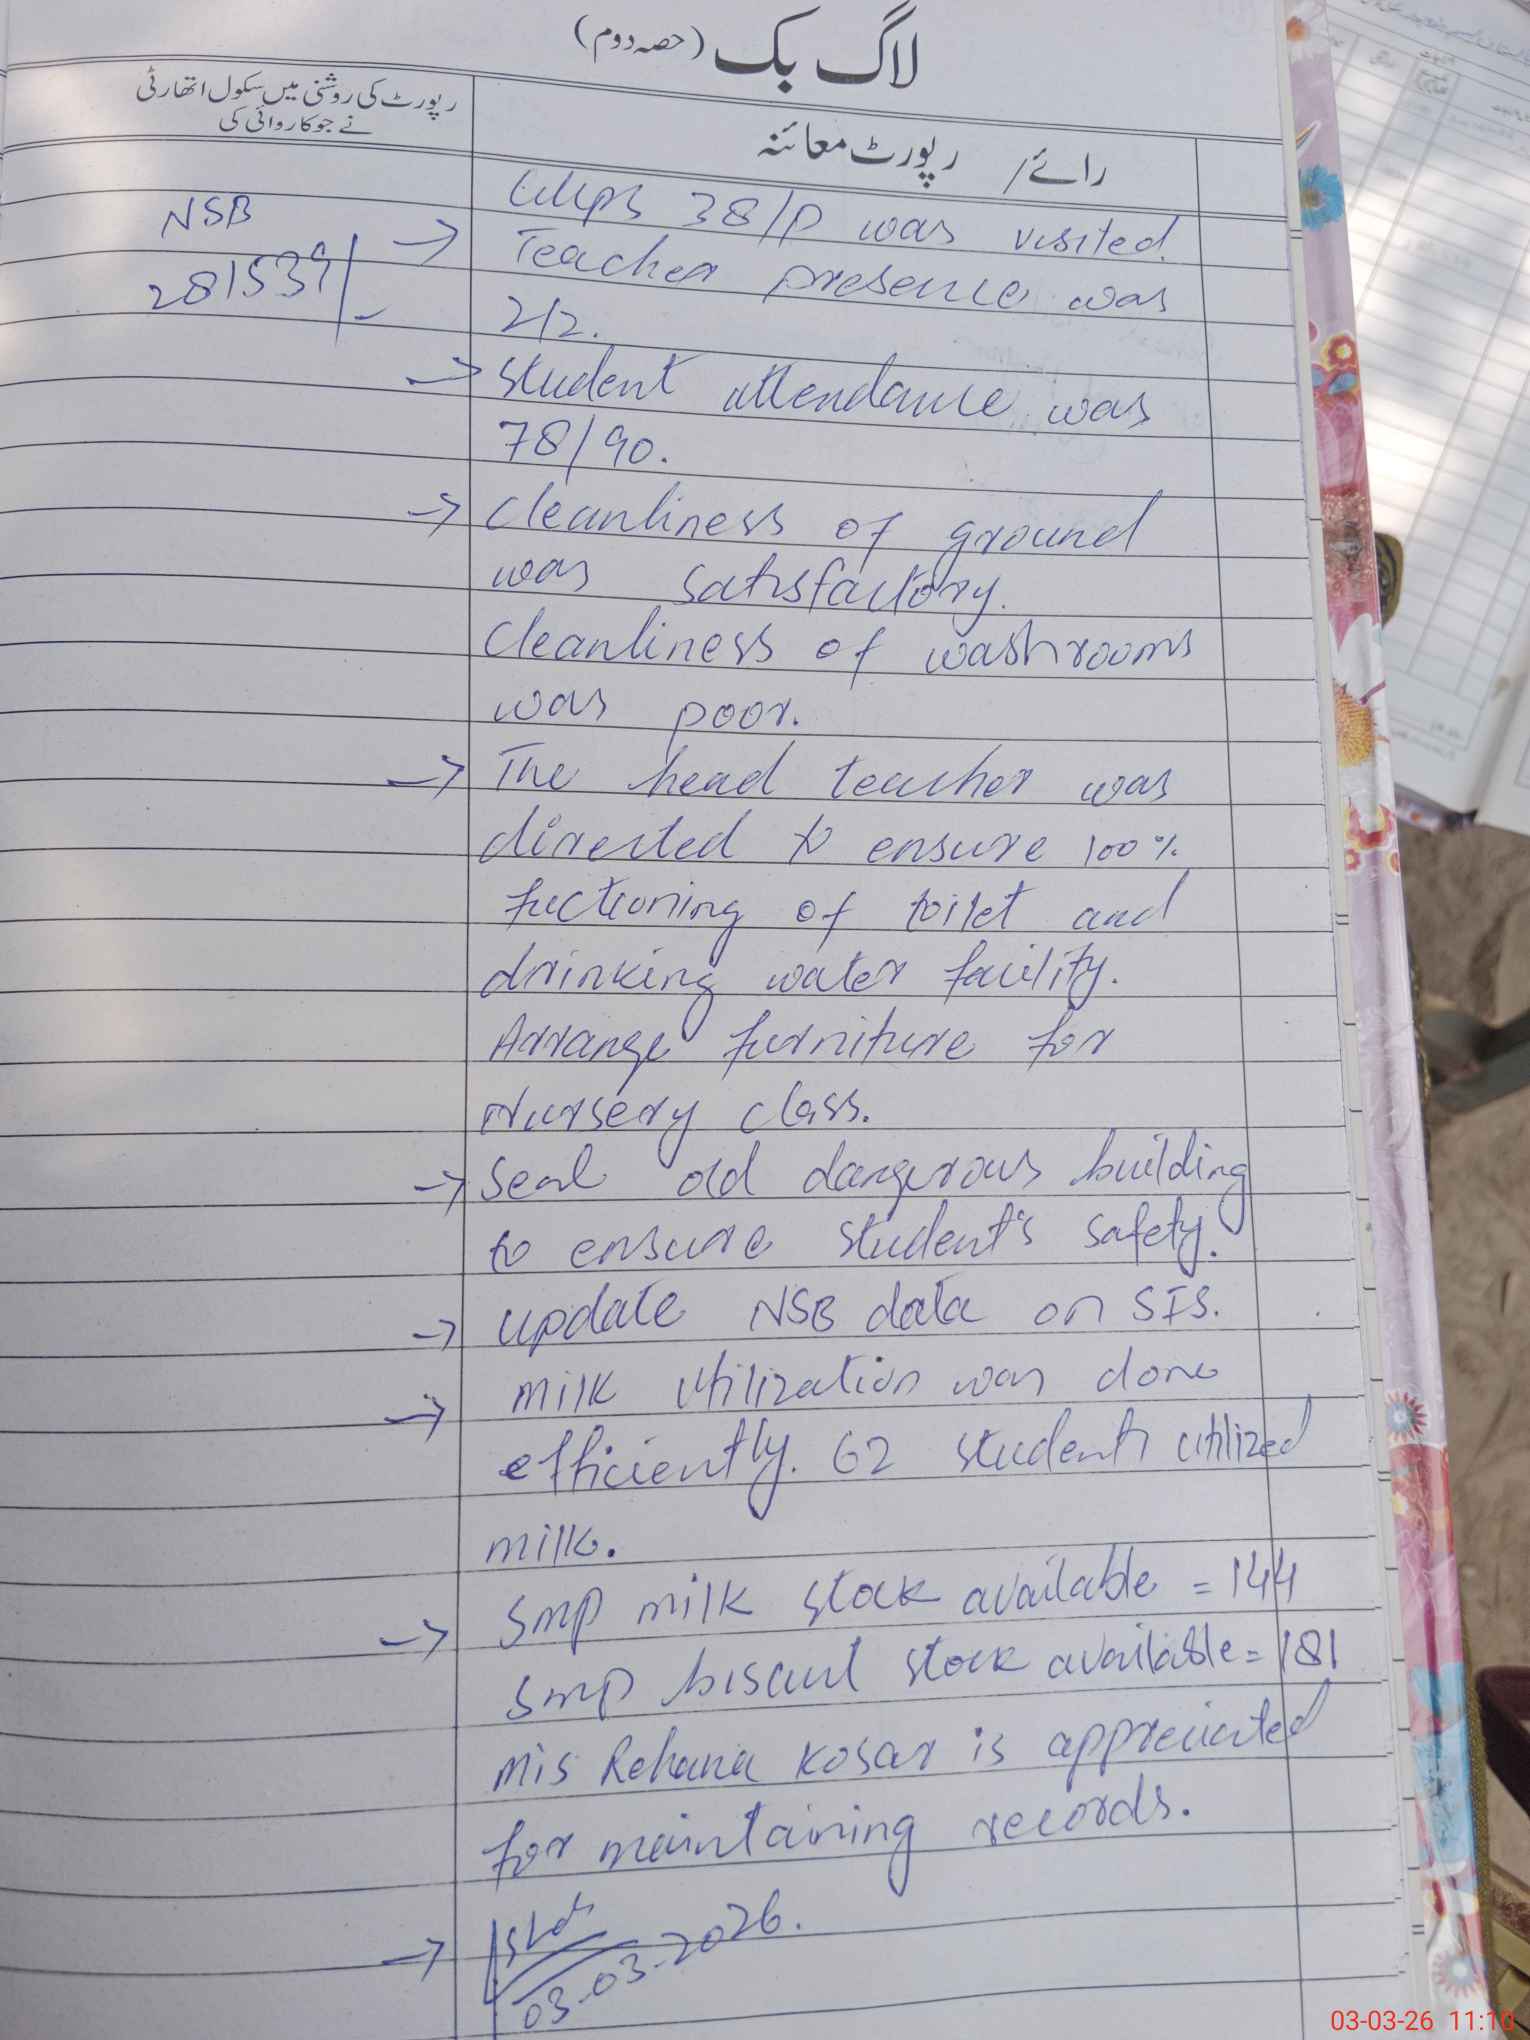 لاگ بک (حصہ دوم)
رائے / رپورٹ معائنہ
رپورٹ کی روشنی میں سکول اتھارٹی
نے جو کاروائی کی
NSB
281539/-
38/P was visited.
→ Teacher presence was
2/2.
→ student attendance was
78/90.
→ cleanliness of ground
was satisfactory.
cleanliness of washrooms
was poor.
→ The head teacher was
directed to ensure 100%
fuctioning of toilet and
drinking water facility.
Arrange furniture for
Nursery class.
→ Seal old dangerous building
to ensure student's safety.
→ update NSB data on SIS.
→ milk utilization was done
efficiently. 62 students utilized
milk.
→ SMP milk stock available = 144
SMP biscuit stock available = 181
Mis Rehana Kosar is appreciated
for maintaining records.
→ 03-03-2026.
03-03-26 11:10